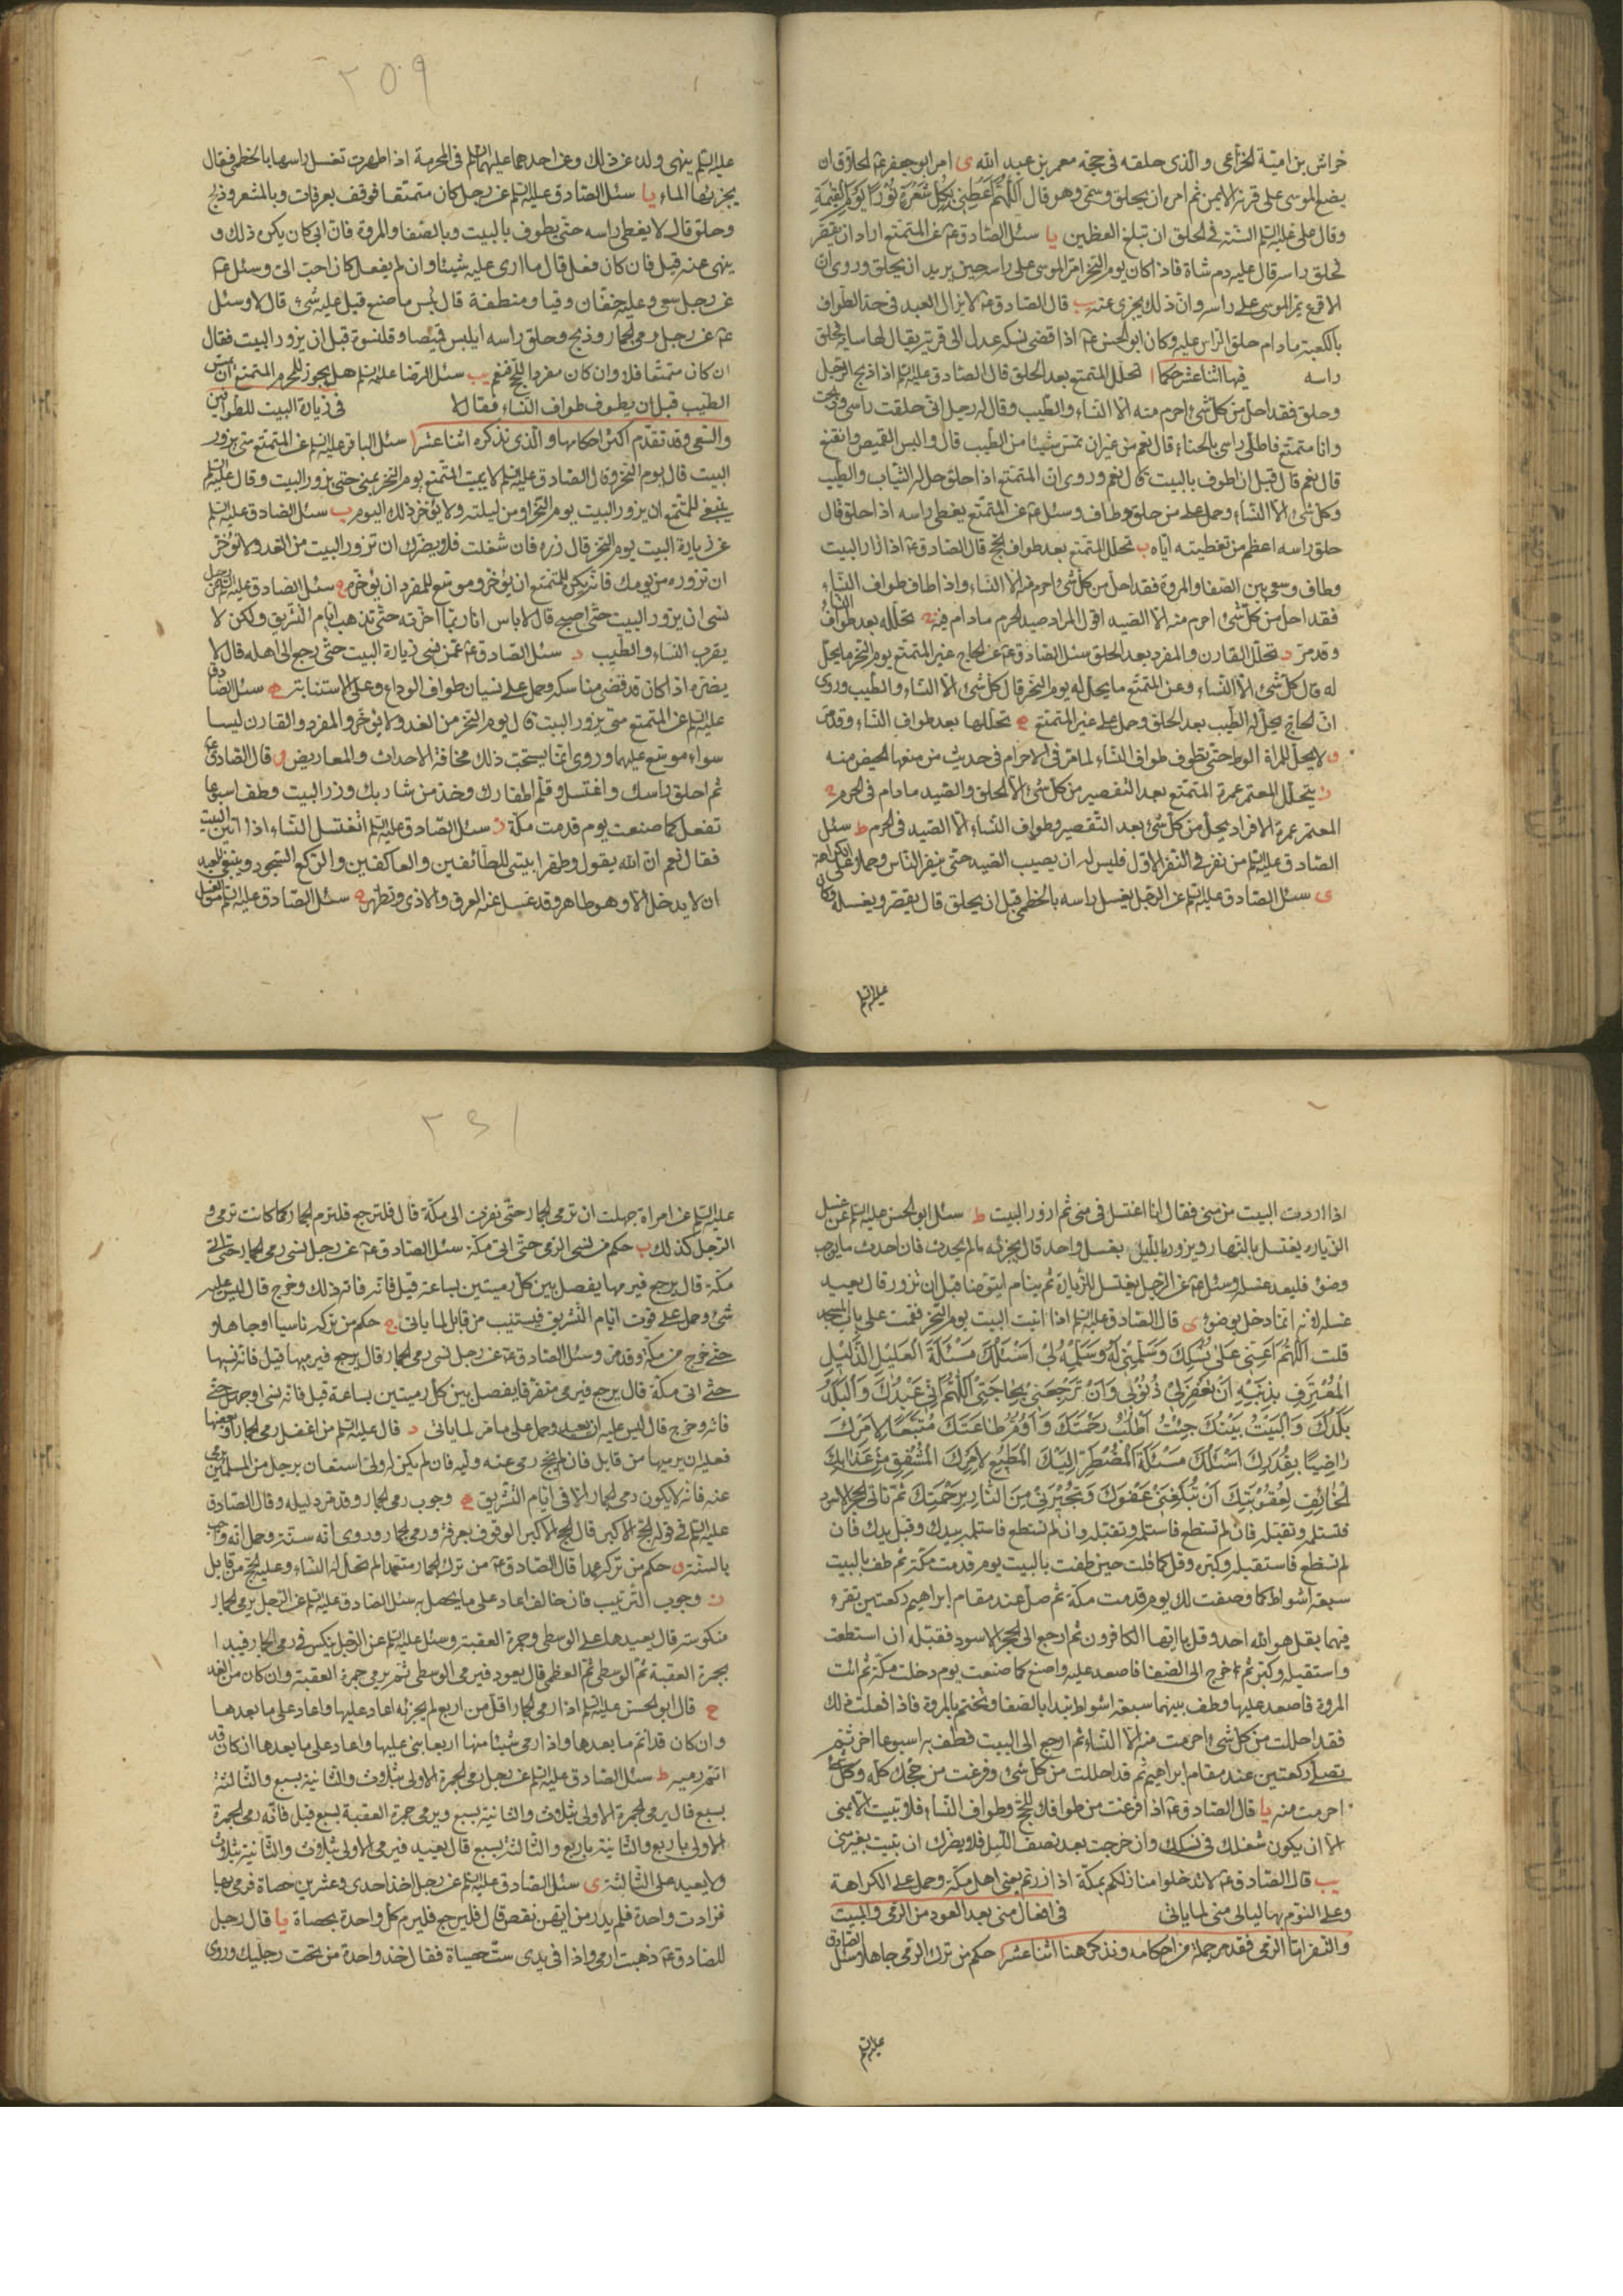 خراش بن امية الخزاعى والذى حلقه فى حجته معمر بن عبد الله ى امر ابو جعفر ع الحلاق ان
يضع الموسى على قرنه الايمن ثم امره ان يحلق وسمى وهو قال اللهم اعطنى بكل شعرة نورا يوم القيمة
وقال على عليه السلم السنة فى الحلق ان تبلغ العظمين يا سئل الصادق ع عن المتمتع اراد ان يقصر
فحلق راسه قال عليه دم شاة فاذا كان يوم النحر امر الموسى على راسه حين يريد ان يحلق وروى ان
الاقرع يمر الموسى على راسه وان ذلك يجزى عنه يب قال الصادق ع لا يزال العبد فى حد الطواف
بالكعبة مادام حلق الراس عليه وكان ابو الحسن ع اذا قضى نسكه عدل الى قرية يقال لها ساية فحلق
راسه فيها اثنا عشر حكما ا تحلل المتمتع بعد الحلق قال الصادق عليه السلم اذا ذبح الرجل
وحلق فقد احل من كل شئ احرم منه الا النساء والطيب وقال له رجل انى حلقت راسى وذبحت
وانا متمتع فاطلى راسى بالحناء قال نعم من غير ان تمس شيئا من الطيب قال والبس القميص واتقنع
قال نعم قال قبل ان اطوف بالبيت قال نعم وروى ان المتمتع اذا حلق حل له الثياب والطيب
وكل شئ الا النساء وحمل على من حلق وطاف وسئل ع عن المتمتع يغطى راسه اذا حلق قال
حلق راسه اعظم من تغطيته اياه ب تحلل المتمتع بعد طواف الحج قال الصادق ع اذا زار البيت
وطاف وسعى بين الصفا والمروة فقد احل من كل شئ احرم منه الا النساء واذا طاف طواف النساء
فقد احل من كل شئ احرم منه الا الصيد اقول المراد صيد الحرم مادام فيه ج تحلله بعد طواف النساء
وقد مر د تحلل القارن والمفرد بعد الحلق سئل الصادق ع عن الحاج غير المتمتع يوم النحر ما يحل
له قال كل شئ الا النساء وعن المتمتع ما يحل له يوم النحر قال كل شئ الا النساء والطيب وروى
ان الحاج يحل له الطيب بعد الحلق وحمل على غير المتمتع ه تحللها بعد طواف النساء وقد مر
و لا يحل للمراة الوطء حتى تطوف طواف النساء لما مر فى الاحرام فى حديث من منعها الحيض منه
ز يتحلل المعتمر عمرة المتمتع بعد التقصير من كل شئ الا الحلق والصيد مادام فى الحرم ح
المعتمر عمرة الافراد يحل من كل شئ بعد التقصير وطواف النساء الا الصيد فى الحرم ط سئل
الصادق عليه السلم من نفر فى النفر الاول فليس له ان يصيب الصيد حتى ينفر الناس وحمل على الكراهة
ى سئل الصادق عليه السلم عن الرجل يغسل راسه بالخطمى قبل ان يحلق قال يقصر ويغسله وكان
عليه السلم
عليه السلم ينهى ولده عن ذلك وعن احدهما عليهما السلم فى المحرمة اذا طهرت تغسل راسها بالخطمى فقال
يجزئها الماء يا سئل الصادق عليه السلم عن رجل كان متمتعا فوقف بعرفات وبالمشعر وذبح
وحلق قال لا يغطى راسه حتى يطوف بالبيت وبالصفا والمروة فان ابى كان يكره ذلك و
ينهى عنه قيل فان كان فعل قال ما ارى عليه شيئا وان لم يفعل كان احب الى وسئل ع
عن رجل سعى وعليه خفان وقبا ومنطقة قال بئس ما صنع قيل عليه شئ قال لا وسئل
ع عن رجل رمى الجمار وذبح وحلق راسه ايلبس قميصا وقلنسوة قبل ان يزور البيت فقال
ان كان متمتعا فلا وان كان مفردا للحج فنعم يب سئل الرضا عليه السلم هل يجوز للمحرم المتمتع ان يمس
الطيب قبل ان يطوف طواف النساء فقال لا فى زيارة البيت للطوافين
والسعى وقد تقدم اكثر احكامها والذى نذكره اثنا عشر ا سئل الباقر عليه السلم عن المتمتع متى يزور
البيت قال يوم النحر وقال الصادق عليه السلم لا يبيت المتمتع يوم النحر بمنى حتى يزور البيت وقال عليه السلم
ينبغى للمتمتع ان يزور البيت يوم النحر او من ليلته ولا يؤخر ذلك اليوم ب سئل الصادق عليه السلم
عن زيارة البيت يوم النحر قال زره فان شغلت فلا يضرك ان تزور البيت من الغد ولا تؤخر
ان تزوره من يومك فانه يكره للمتمتع ان يؤخر وموسع للمفرد ان يؤخره ج سئل الصادق عليه السلم عن رجل
نسى ان يزور البيت حتى اصبح قال لا باس انا ربما اخرته حتى تذهب ايام التشريق ولكن لا
يقرب النساء والطيب د سئل الصادق ع عمن نسى زيارة البيت حتى رجع الى اهله قال لا
يضره اذا كان قد قضى مناسكه وحمل على نسيان طواف الوداع وعلى الاستنابة ه سئل الصادق
عليه السلم عن المتمتع متى يزور البيت قال يوم النحر من الغد ولا يؤخر والمفرد والقارن ليسا
سواء موسع عليهما وروى انما يستحب ذلك مخافة الاحداث والمعاريض و قال الصادق ع
ثم احلق راسك واغتسل وقلم اظفارك وخذ من شاربك وزر البيت وطف اسبوعا
تفعل كما صنعت يوم قدمت مكة ز سئل الصادق عليه السلم اتغتسل النساء اذا اتين البيت
فقال نعم ان الله يقول وطهرا بيتى للطائفين والعاكفين والركع السجود وينبغى للعبد
ان لا يدخل الا وهو طاهر وقد غسل عنه العرق والاذى وتطهر ح سئل الصادق عليه السلم عن الغسل
اذا اردت البيت من منى فقال انا اغتسل فى منى ثم ازور البيت ط سئل ابو الحسن عليه السلم عن غسل
الزيارة يغتسل بالنهار ويزور بالليل بغسل واحد قال يجزئه ما لم يحدث فان احدث ما يوجب
وضوء فليعد غسله وسئل ع عن الرجل يغتسل للزيارة ثم ينام ايتوضا قبل ان تزور قال يعيد
غسله لانه انما دخل بوضوء ى قال الصادق عليه السلم اذا اتيت البيت يوم النحر فقمت على باب المسجد
قلت اللهم اعنى على نسكك وسلمنى له وسلمه لى اسئلك مسئلة العليل الذليل
المعترف بذنبه ان تغفر لى ذنوبى وان ترجعنى بحاجتى اللهم انى عبدك والبلد
بلدك والبيت بيتك جئت اطلب رحمتك واؤم طاعتك متبعا لامرك
راضيا بقدرك اسئلك مسئلة المضطر اليك المطيع لامرك المشفق من عذابك
الخائف لعقوبتك ان تبلغنى عفوك وتجيرنى من النار برحمتك ثم تاتى الحجر الاسود
فتستلمه وتقبله فان لم تستطع فاستلمه وتقبله وان لم تستطع فاستلمه بيدك وقبل يدك فان
لم تستطع فاستقبله وكبره وقل كما قلت حين طفت بالبيت يوم قدمت مكة ثم طف بالبيت
سبعة اشواط كما وصفت لك يوم قدمت مكة ثم صل عند مقام ابراهيم ركعتين تقرء
فيهما بقل هو الله احد وقل يا ايها الكافرون ثم ارجع الى الحجر الاسود فقبله ان استطعت
واستقبله وكبر ثم اخرج الى الصفا فاصعد عليه واصنع كما صنعت يوم دخلت مكة ثم ائت
المروة فاصعد عليها وطف بينهما سبعة اشواط تبدا بالصفا وتختم بالمروة فاذا فعلت ذلك
فقد احللت من كل شئ احرمت منه الا النساء ثم ارجع الى البيت فطف به اسبوعا اخر ثم
تصلى ركعتين عند مقام ابراهيم ثم قد احللت من كل شئ وفرغت من حجك كله وكل شئ
احرمت منه يا قال الصادق ع اذا فرغت من طوافك للحج وطواف النساء فلا تبيت الا بمنى
الا ان يكون شغلك فى نسكك وان خرجت بعد نصف الليل فلا يضرك ان تبيت بغير منى
يب قال الصادق ع لا تدخلوا منازلكم بمكة اذا زرتم يعنى اهل مكة وحمل على الكراهة
وعلى النوم بها ليالى منى لما ياتى فى افعال منى بعد العود من الرمى والمبيت
والنفر اما الرمى فقد مر جملة من احكامه ونذكر هنا اثنا عشر ا حكم من ترك الرمى جاهلا وسئل الصادق
عليه السلم
عليه السلم عن امراة جهلت ان ترمى الجمار حتى نفرت الى مكة قال فلترجع فلترم الجمار كما كانت ترمى و
الرجل كذلك ب حكم من نسى الرمى حتى اتى مكة سئل الصادق ع عن رجل نسى رمى الجمار حتى اتى
مكة قال يرجع فيرميها يفصل بين كل رميتين بساعة قيل فانه فاته ذلك وخرج قال ليس عليه
شئ وحمل على فوت ايام التشريق فيستنيب من قابل لما ياتى ج حكم من تركه ناسيا او جاهلا
حتى خرج من مكة وقد مر وسئل الصادق ع عن رجل نسى رمى الجمار قال يرجع فيرميها قيل فانه نسيها
حتى اتى مكة قال يرجع فيرمى متفرقا يفصل بين كل رميتين بساعة قيل فانه نسى او جهل حتى
فاته وخرج قال ليس عليه ان يعيد وحمل على ما مر لما ياتى د قال عليه السلم من اغفل رمى الجمار او بعضها
فعليه ان يرميها من قابل فان لم يحج رمى عنه وليه فان لم يكن له ولى استعان برجل من المسلمين يرمى
عنه فانه لا يكون رمى الجمار الا فى ايام التشريق ه وجوب رمى الجمار وقد مر دليله وقال الصادق
عليه السلم فى قوله الحج الاكبر قال الحج الاكبر الوقوف بعرفة ورمى الجمار وروى انه سنة وحمل انه وجب
بالسنة و حكم من تركه عمدا قال الصادق ع من ترك الجمار متعمدا لم تحل له النساء وعليه الحج من قابل
ز وجوب الترتيب فان خالف اعاد على ما يحصل به سئل الصادق عليه السلم عن الرجل يرمى الجمار
منكوسة قال يعيدها على الوسطى وجمرة العقبة وسئل عليه السلم عن الرجل ينكس فى رمى الجمار فيبدا
بجمرة العقبة ثم الوسطى ثم العظمى قال يعود فيرمى الوسطى ثم يرمى جمرة العقبة وان كان من الغد
ح قال ابو الحسن عليه السلم اذا رمى الجمار اقل من اربع لم يجزئه اعاد عليها واعاد على ما بعدها
وان كان قد اتم ما بعدها واذا رمى شيئا منها اربعا بنى عليها واعاد على ما بعدها ان كان قد
اتم رميه ط سئل الصادق عليه السلم عن رجل رمى الجمرة الاولى بثلاث والثانية بسبع والثالثة
بسبع قال يرمى الجمرة الاولى بثلاث والثانية بسبع ويرمى جمرة العقبة بسبع قيل فانه رمى الجمرة
الاولى باربع والثانية باربع والثالثة بسبع قال يعيد فيرمى الاولى بثلاث والثانية بثلاث
ولا يعيد على الثالثة ى سئل الصادق عليه السلم عن رجل اخذ احدى وعشرين حصاة فرمى بها
فزادت واحدة فلم يدر من ايتهن نقص قال فليرجع فليرم كل واحدة بحصاة يا قال رجل
للصادق ع ذهبت ارمى واذا فى يدى ست حصياة فقال خذ واحدة من تحت رجليك وروى